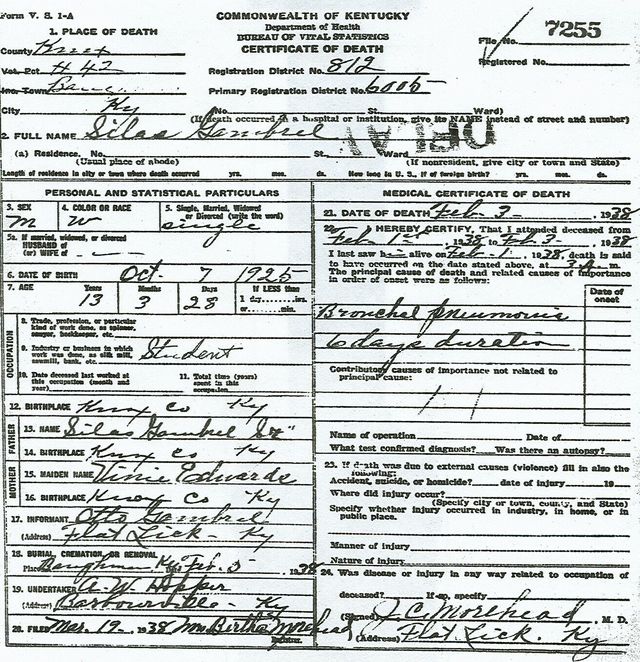 Form V. S. 1-A
COMMONWEALTH OF KENTUCKY
Department of Health
BUREAU OF VITAL STATISTICS
CERTIFICATE OF DEATH
File No. 7255
Registered No.
1. PLACE OF DEATH
County Knox
Vot. Pct. #42
Inc. Town
City Ky
Registration District No. 812
Primary Registration District No. 6005
No. St. Ward)
(If death occurred in a hospital or institution, give its NAME instead of street and number)
2. FULL NAME Silas Gambrel
DELAY
(a) Residence. No. St. Ward
(Usual place of abode) (If nonresident, give city or town and State)
Length of residence in city or town where death occurred yrs. mos. ds. How long in U. S., if of foreign birth? yrs. mos. ds.
PERSONAL AND STATISTICAL PARTICULARS
3. SEX M
4. COLOR OR RACE W
5. Single, Married, Widowed or Divorced (write the word) single
5a. If married, widowed, or divorced
HUSBAND of
(or) WIFE of
6. DATE OF BIRTH Oct 7 1925
7. AGE Years Months Days If LESS than
13 3 28 1 day ......hrs.
or......min.
OCCUPATION
8. Trade, profession, or particular
kind of work done, as spinner,
sawyer, bookkeeper, etc.
9. Industry or business in which
work was done, as silk mill,
sawmill, bank, etc. Student
10. Date deceased last worked at
this occupation (month and
year)
11. Total time (years)
spent in this
occupation
12. BIRTHPLACE Knox Co Ky
FATHER
13. NAME Silas Gambrel Sr
14. BIRTHPLACE Knox Co Ky
MOTHER
15. MAIDEN NAME Vinie Edwards
16. BIRTHPLACE Knox Co Ky
17. INFORMANT Otto Gambrel
(Address) Flat Lick - Ky
18. BURIAL, CREMATION, OR REMOVAL
Place Baughman Ky Feb. 5 1938
19. UNDERTAKER A. W. Hopper
(Address) Barbourville - Ky
20. FILED Mar. 19 - 1938 Mrs Bertha Morehead
Registrar.
MEDICAL CERTIFICATE OF DEATH
21. DATE OF DEATH Feb 3 - 1938
22. I HEREBY CERTIFY, That I attended deceased from
Feb 1st 1938 to Feb 3 - 1938
I last saw him alive on Feb. 1, 1938, death is said
to have occurred on the date stated above, at m.
The principal cause of death and related causes of importance
in order of onset were as follows:
Date of
onset
Bronchal pneumonia
6 days duration
Contributory causes of importance not related to
principal cause:
Name of operation Date of
What test confirmed diagnosis? Was there an autopsy?
23. If death was due to external causes (violence) fill in also the
following:
Accident, suicide, or homicide? date of injury 19
Where did injury occur?
(Specify city or town, county, and State)
Specify whether injury occurred in industry, in home, or in
public place.
Manner of injury
Nature of injury
24. Was disease or injury in any way related to occupation of
deceased? If so, specify
(Signed) J. C. Morehead, M. D.
(Address) Flat Lick. Ky